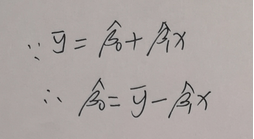 ∵ ȳ = β̂₀ + β̂₁x
∴ β̂₀ = ȳ − β̂₁x